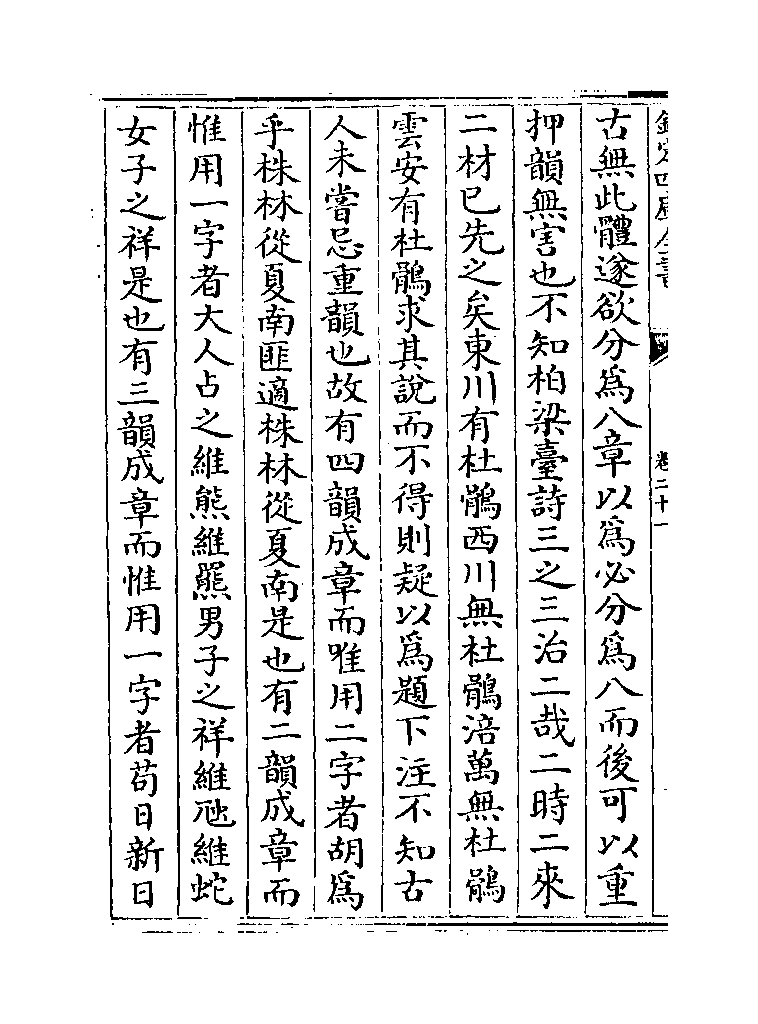 欽定四庫全書
卷二十一
古無此體遂欲分為八章以為必分為八而後可以重
押韻無害也不知柏梁臺詩三之三治二哉二時二來
二材已先之矣東川有杜鵑西川無杜鵑涪萬無杜鵑
雲安有杜鵑求其說而不得則疑以為題下注不知古
人未嘗忌重韻也故有四韻成章而唯用二字者胡為
乎株林從夏南匪適株林從夏南是也有二韻成章而
惟用一字者大人占之維熊維羆男子之祥維虺維蛇
女子之祥是也有三韻成章而惟用一字者苟日新日